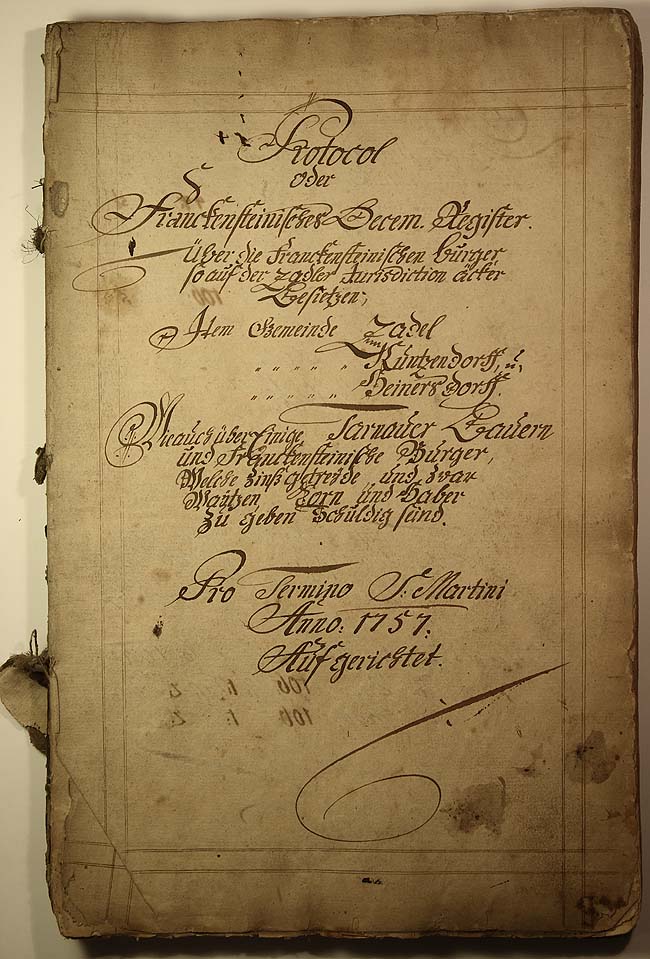 Protocol
oder
Franckensteinisches Decem. Register.
Über die Franckensteinischen bürger,
so auf der Zadler Jurisdiction äcker
Besietzen,
Item Gemeinde Zadel
" " " " " Kuntzendorff, u,
" " " " " Heinersdorff.
Wie auch über Einige Tarnauer Bauern
und Franckensteinische Bürger,
Welche Zinß getreyde und zwar
Waitzen Corn und Haber
zu geben Schuldig sind.
Pro Termino S: Martini
Anno: 1757.
Aufgerichtet.